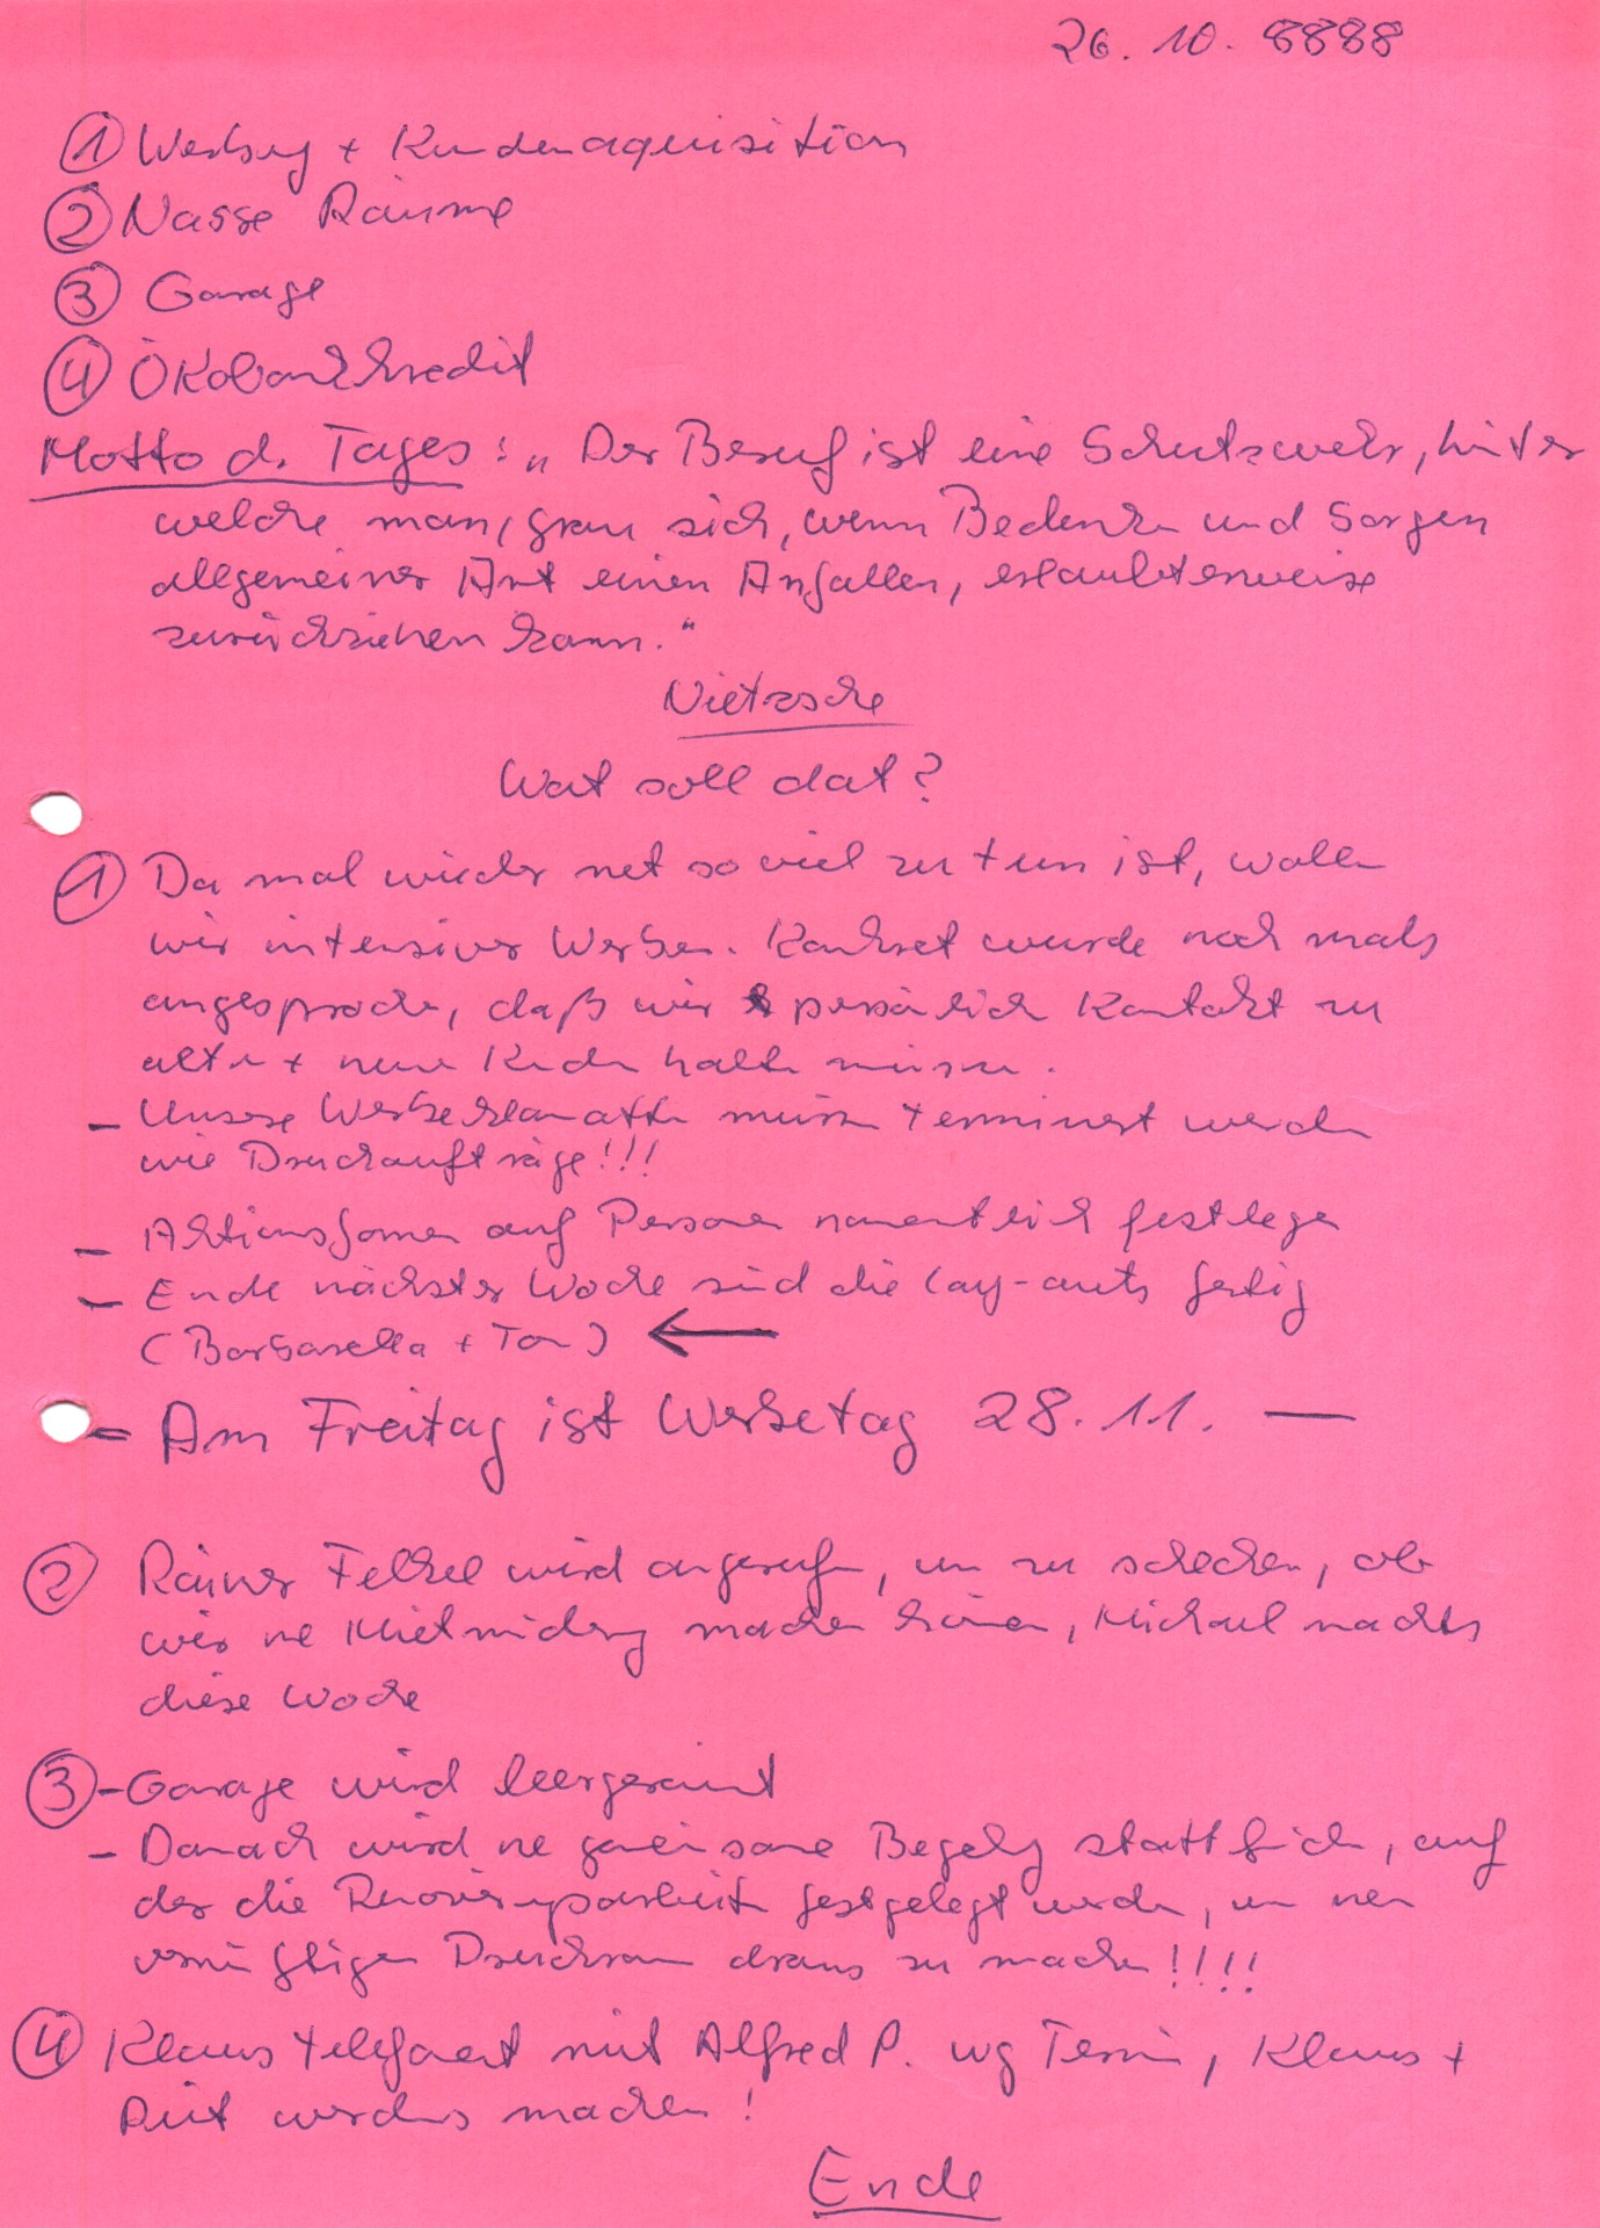 26. 10. 8888
① Werbung + Kundenaquisition
② Nasse Räume
③ Garage
④ Ökobankkredit
Motto d. Tages: „Der Beruf ist eine Schutzwehr, hinter
welche man/frau sich, wenn Bedenken und Sorgen
allgemeiner Art einen Anfallen, erlaubterweise
zurückziehen kann."
Nietzsche
Wat soll dat?
① Da mal wieder net so viel zu tun ist, wollen
wir intensiver Werben. Konkret wurde noch mals
angesprochen, daß wir persönlich Kontakt zu
alten + neuen Kunden halten müssen.
- Unsere Werbeklamotten müssen terminiert werden
wie Druckaufträge!!!
- Aktionsformen auf Personen namentlich festlegen
- Ende nächster Woche sind die Lay-outs fertig
(Barbarella + Tom) ←
- Am Freitag ist Werbetag 28. 11. —
② Rainer wird angerufen, um zu schecken, ob
wir ne Mietminderung machen können, Michael machts
diese Woche
③ - Garage wird leergeräumt
- Danach wird ne gemeinsame Begehung stattfinden, auf
der die Renovierungsarbeiten festgelegt werden, um nen
vernünftigen Druckraum draus zu machen!!!!
④ Klaus telefoniert mit Alfred P. wg Termin, Klaus +
werdens machen!
Ende